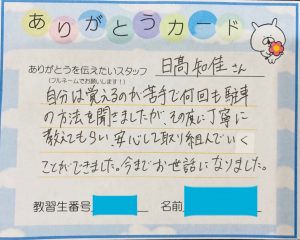 ありがとうカード
ありがとうを伝えたいスタッフ 日高知佳さん
(フルネームでお願いします!)
自分は覚えるのが苦手で何回も駐車
の方法を聞きましたが、その度に丁寧に
教えてもらい、安心して取り組んでいく
ことができました。今までお世話になりました。
教習生番号 名前